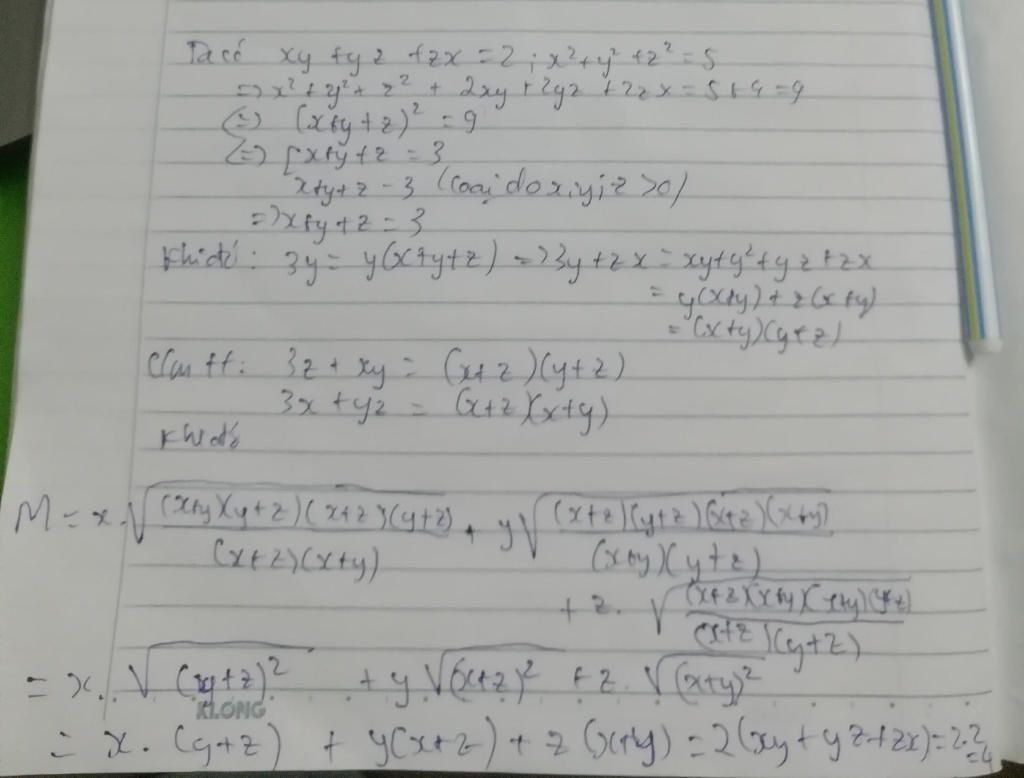 Ta có xy + yz + zx = 2 ; x² + y² + z² = 5
=> x² + y² + z² + 2xy + 2yz + 2zx = 5 + 4 = 9
<=> (x+y+z)² = 9
<=> [ x+y+z = 3
x+y+z - 3 (loại do x, y, z > 0)
=> x+y+z = 3
Khi đó: 3y = y(x+y+z) => 3y + zx = xy + y² + yz + zx
= y(x+y) + z(x+y)
= (x+y)(y+z)
tt: 3z + xy = (x+z)(y+z)
3x + yz = (x+z)(x+y)
Khi đó
M = x.√((x+y)(y+z)(x+z)(y+z) / (x+z)(x+y)) + y√((x+z)(y+z)(x+z)(x+y) / (x+y)(y+z))
+ z.√((x+z)(x+y)(x+y)(y+z) / (x+z)(y+z))
= x.√(y+z)² + y√(x+z)² + z.√(x+y)²
KLONG
= x.(y+z) + y(x+z) + z(x+y) = 2(xy+yz+zx) = 2.2
= 4